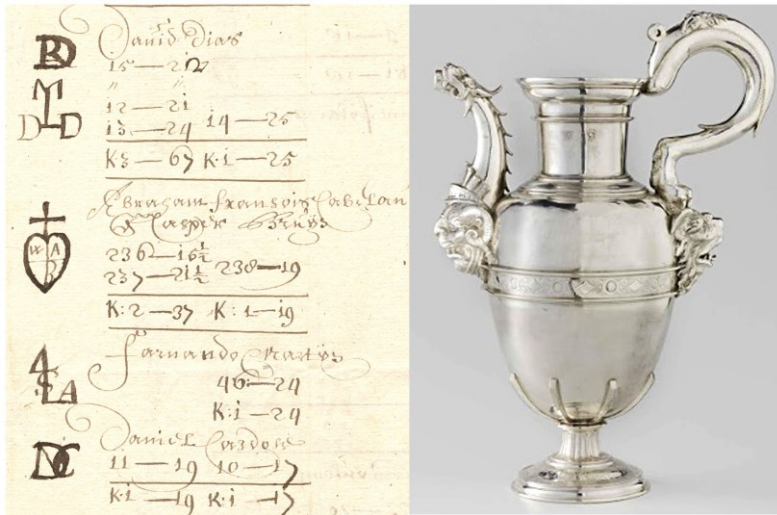 BD
David Dias
15 — 22
" "
D D
12 — 21
13 — 24 14 — 25
K3 — 67 K·1 — 25
Abraham fransois Cabeljau
& Casper
W A B
236 — 16½
237 — 21½ 238 — 19
K:2 — 37 K:1 — 19
4
A
fernando Martijs
46: — 24
K:1 — 24
DC
Daniel Cardose
11 — 19 10 — 17
K·1 — 19 K·1 — 17